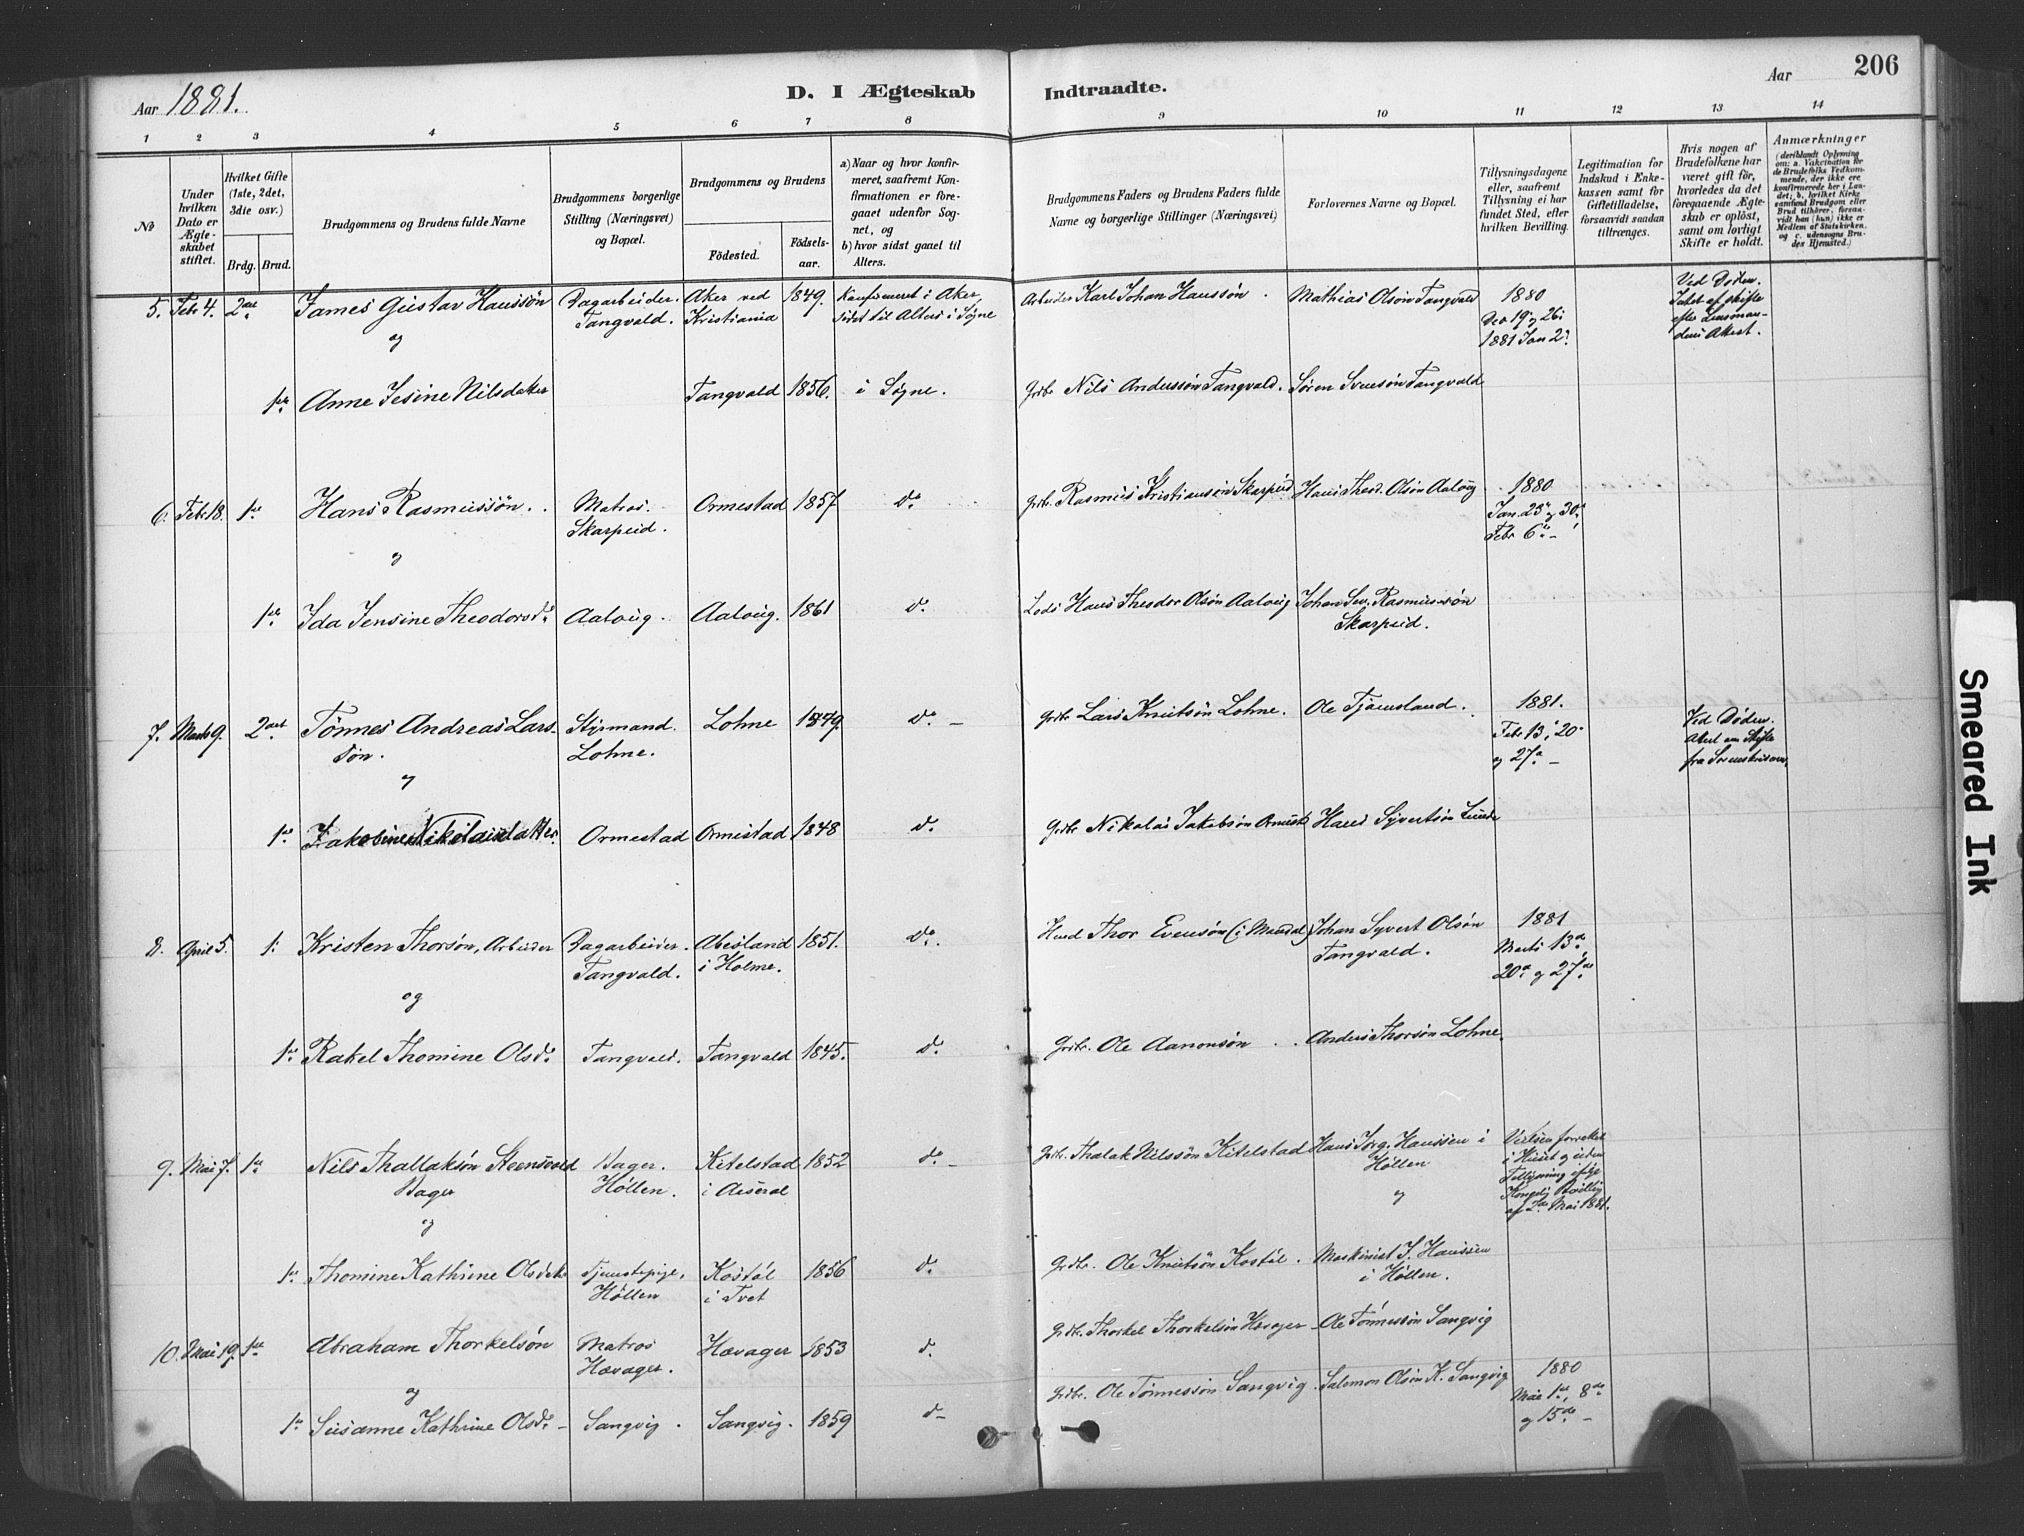 Aar 1881.
D. I Ægteskab Indtraadte.
Aar
206
1 2 3 4 5 6 7 8 9 10 11 12 13 14
No
Under hvilken Dato er Ægteskabet stiftet.
Hvilket Gifte (1ste, 2det, 3die osv.)
Brdg. Brud.
Brudgommens og Brudens fulde Navne
Brudgommens borgerlige Stilling (Næringsvei) og Bopæl.
Brudgommens og Brudens
Födested.
Födselsaar.
a) Naar og hvor konfirmeret, saafremt Konfirmationen er foregaaet udenfor Sognet, og
b) hvor sidst gaaet til Alters.
Brudgommens Faders og Brudens Faders fulde Navne og borgerlige Stillinger (Næringsvei)
Forlovernes Navne og Bopæl.
Tillysningsdagene eller, saafremt Tillysning ei har fundet Sted, efter hvilken Bevilling.
Legitimation for Indskud i Enkekassen samt for Giftetilladelse, forsaavidt saadan tiltrænges.
Hvis nogen af Brudefolkene har været gift för, hvorledes da det foregaaende Ægteskab er oplöst, samt om lovligt Skifte er holdt.
Anmærkninger
(deriblandt Oplysning om: a. Vakcination for de Brudefolks Vedkommende, der ikke ere konfirmerede her i Landet; b, hvilket Kirkesamfund Brudgom eller Brud tilhörer, forsaavidt han (hun) ikke er Medlem af Statskirken, og c. udensogns Brudes Hjemsted.)
5. Febr 4. 2det James Gustav Hanssøn Dagarbeider. Tangvald. Aker ved Kristiania 1849. Konfirmeret i Aker, sidst til Alters i Søgne Arbeider Karl Johan Hanssøn. Mathias Olsøn Tangvald 1880 Dec 19 og 26. 1881 Jan 2. Ved Døden. Intet af skifte efter Lensmandens Attest.
og
1ste Anne Jesine Nilsdatter Tangvald 1856. i Søgne. Grdbr. Nils Anderssøn Tangvald. Søren Svensøn Tangvald
6. Febr. 18. 1ste Hans Rasmussøn. Matros. Skarpeid. Ormestad 1857 do Grdbr. Rasmus Kristiansøn Skarpeid Hans Theod. Olsøn Aaloug 1880 Jan. 23 og 30. Febr 6.
og
1ste Ida Jensine Theodorsdr. Aaloug. Aaloug. 1861 do Lods Hans Theodor Olsøn Aaloug Johan Sev. Rasmussøn Skarpeid.
7. Marts 9. 2det Tønnes Andreas Larssøn. Styrmand. Lohne. Lohne 1849. do Grdbr Lars Knutsøn Lohne. Ole Tjomsland. 1881. Febr 13, 20 og 27. Ved Døden. Attest om Skifte fra Sorenskriveren.
og
1ste Jakobine Nikolaisdatter. Ormestad Ormestad 1848 do Grdbr Nikolai Jakobsøn Ormestd Hans Syvertsøn Lunde
8. April 5. 1. Kristen Thorsøn, Arbeider Dagarbeider. Tangvald. Abesland i Holme. 1851. do Hmd Thor Evensøn (i Mandal) Johan Syvert Olsøn Tangvald. 1881 Marts 13de, 20de og 27de
og
1ste Rakel Thomine Olsdr. Tangvald. Tangvald 1845. do Grdbr. Ole Aanonsøn. Anders Thorsøn Lohne.
9. Mai 7. 1ste Nils Thallaksøn Steensvold Bager Bager. Høllen. Kitelstad i Aaseral 1852 do Grdbr. Thalak Nilssøn Kitelstad Hans Jørg. Hanssen i Høllen og Vielsen forrettet i Huset og uden Tillysning ifølge Kongelig Bevilling af 2den Mai 1881.
og
1ste Thomine Kathrine Olsdatter Tjenestepige, Høllen Kostøl i Tvet 1856 do Grdbr. Ole Knutsøn Kostøl. Maskinist J. Hanssen i Høllen.
10. Mai 19. 1ste Abraham Thorkelsøn Matros Hævager. Hævager 1853 do Grdbr. Thorkel Thorkelsøn Hævager Ole Tønnessøn Langvig
og
1ste Susanne Kathrine Olsdr. Langvig. Langvig. 1859 do Grdbr. Ole Tønnessøn Langvig. Salemon Olsøn K. Langvig 1880 Mai 1ste, 8de og 15de
Smeared Ink